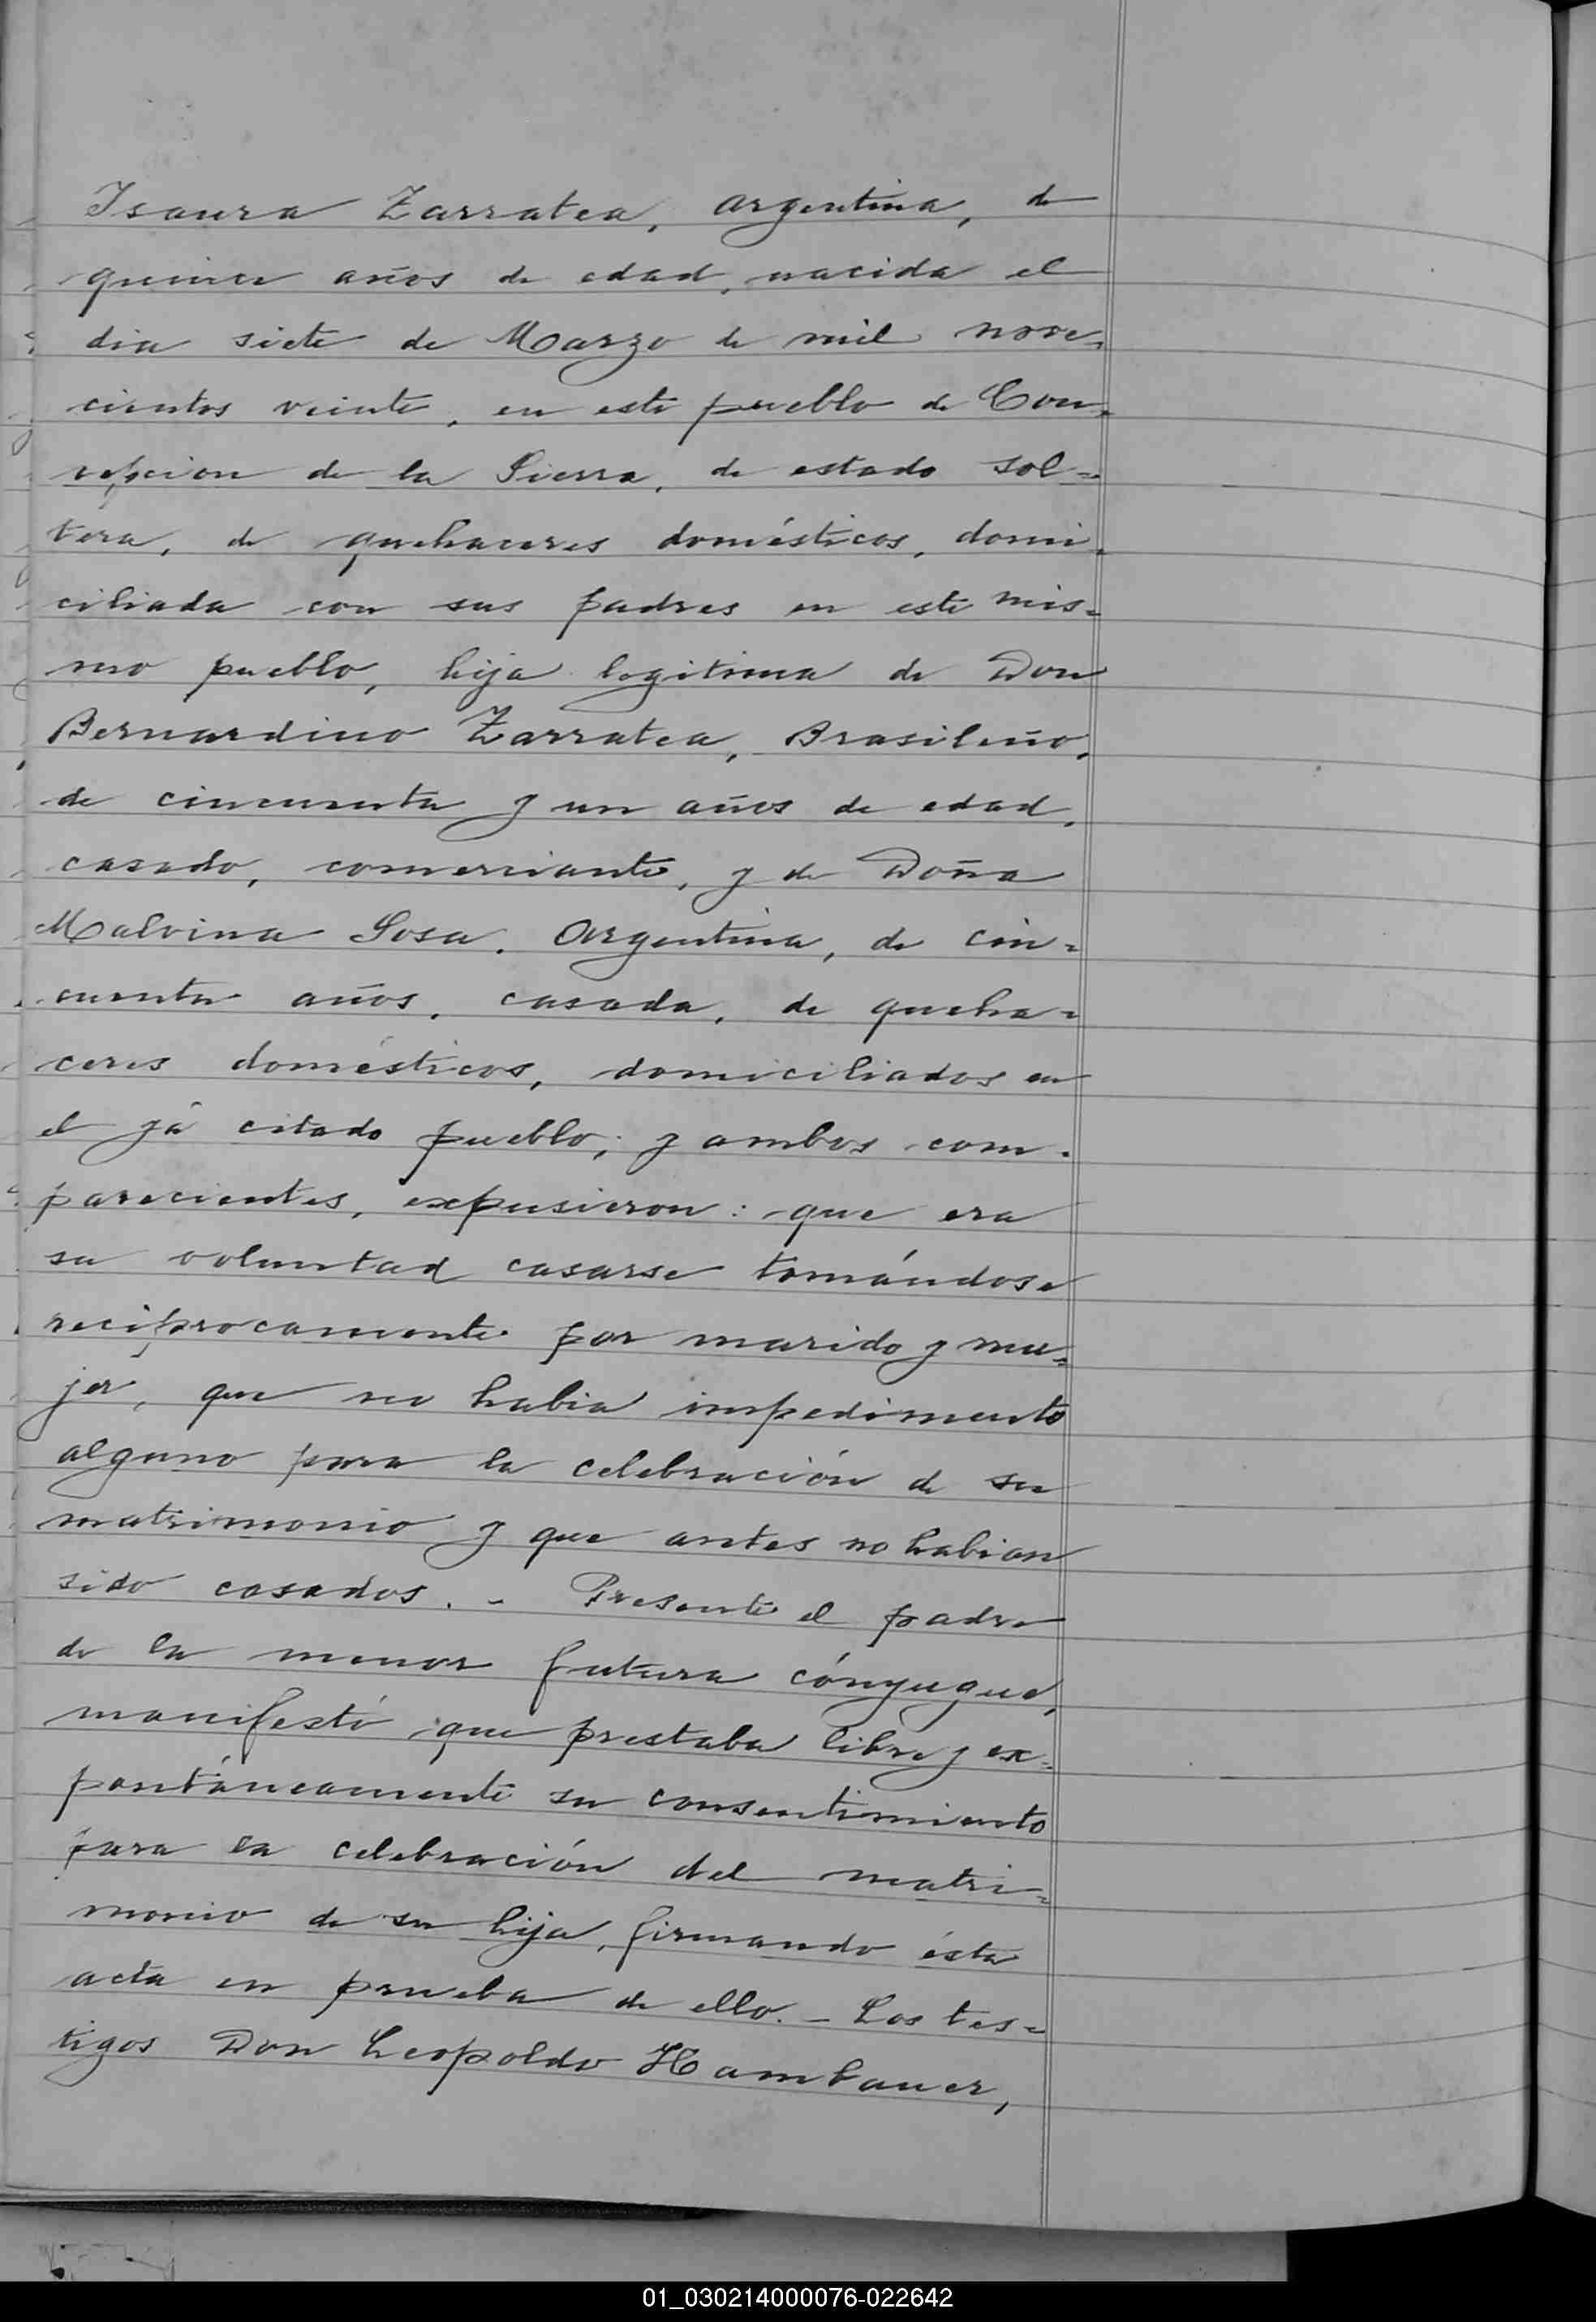 Isaura Zarratea, argentina, de
quince años de edad, nacida el
dia siete de Marzo de mil nove-
cientos veinte, en este pueblo de Con-
cepcion de la Sierra, de estado sol=
tera, de quehaceres domésticos, domi-
ciliada con sus padres en este mis=
mo pueblo, hija legitima de Don
Bernardino Zarratea, Brasileño,
de cincuenta y un años de edad,
casado, comerciante, y de Doña
Malvina Sosa, Argentina, de cin=
cuenta años, casada, de queha=
ceres domésticos, domiciliados en
el yá citado pueblo; y ambos com-
parecientes, expusieron: que era
su voluntad casarse tomándose
reciprocamente por marido y mu=
jer, que no habia impedimento
alguno para la celebración de su
matrimonio y que antes no habian
sido casados. - Presente el padre
de la menor futura cónyugue,
manifestó que prestaba libre y ex=
pontáneamente su consentimiento
para la celebración del matri=
monio de su hija, firmando ésta
acta en prueba de ello. - Los tes=
tigos Don Leopoldo Hambauer,
01_030214000076-022642